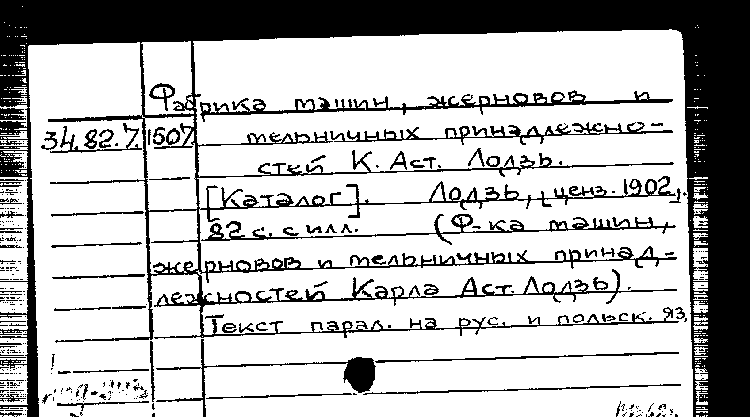 Фабрика машин, жерновов и
34.82.7. 1507 мельничных принадлежно-
стей К. Аст. Лодзь.
[Каталог]. Лодзь, ценз. 1902,
82 с. с илл. (Ф-ка машин,
жерновов и мельничных принад-
лежностей Карла Аст. Лодзь).
Текст парал. на рус. и польск. яз.